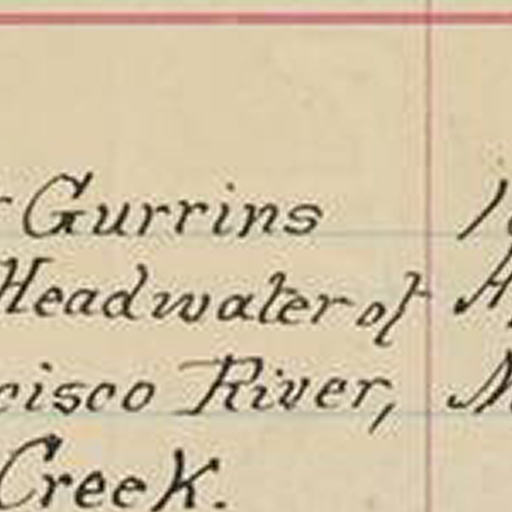 Gurrins
Headwater of
cisco River,
Creek.